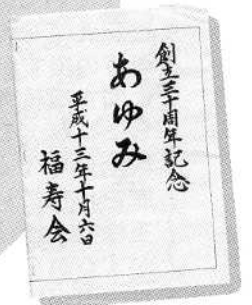 創立三十周年記念
あゆみ
平成十三年十月六日
福寿会